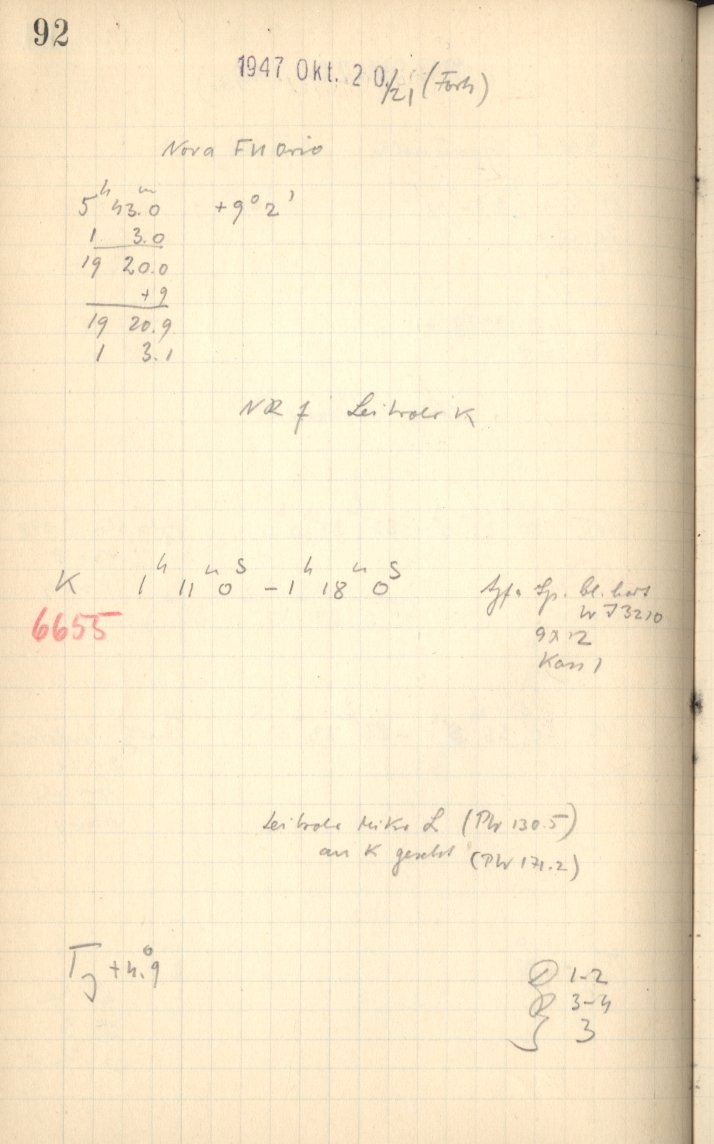 92
1947 Okt. 20./21 (Forts)
Nova FU Orio
5ʰ 43.0ᵐ +9° 2'
1 3.0
19 20.0
+9
19 20.9
1 3.1
NR 7 Leitrohr K
K 1ʰ 11ᵐ 0ˢ – 1ʰ 18ᵐ 0ˢ
6655
Agfa Sp. bl. hart
9x12
Kass 1
Leitrohr Mikr L (Ph 130.5)
an K gesetzt (Ph 171.2)
T +4.°9
1-2
3-4
3